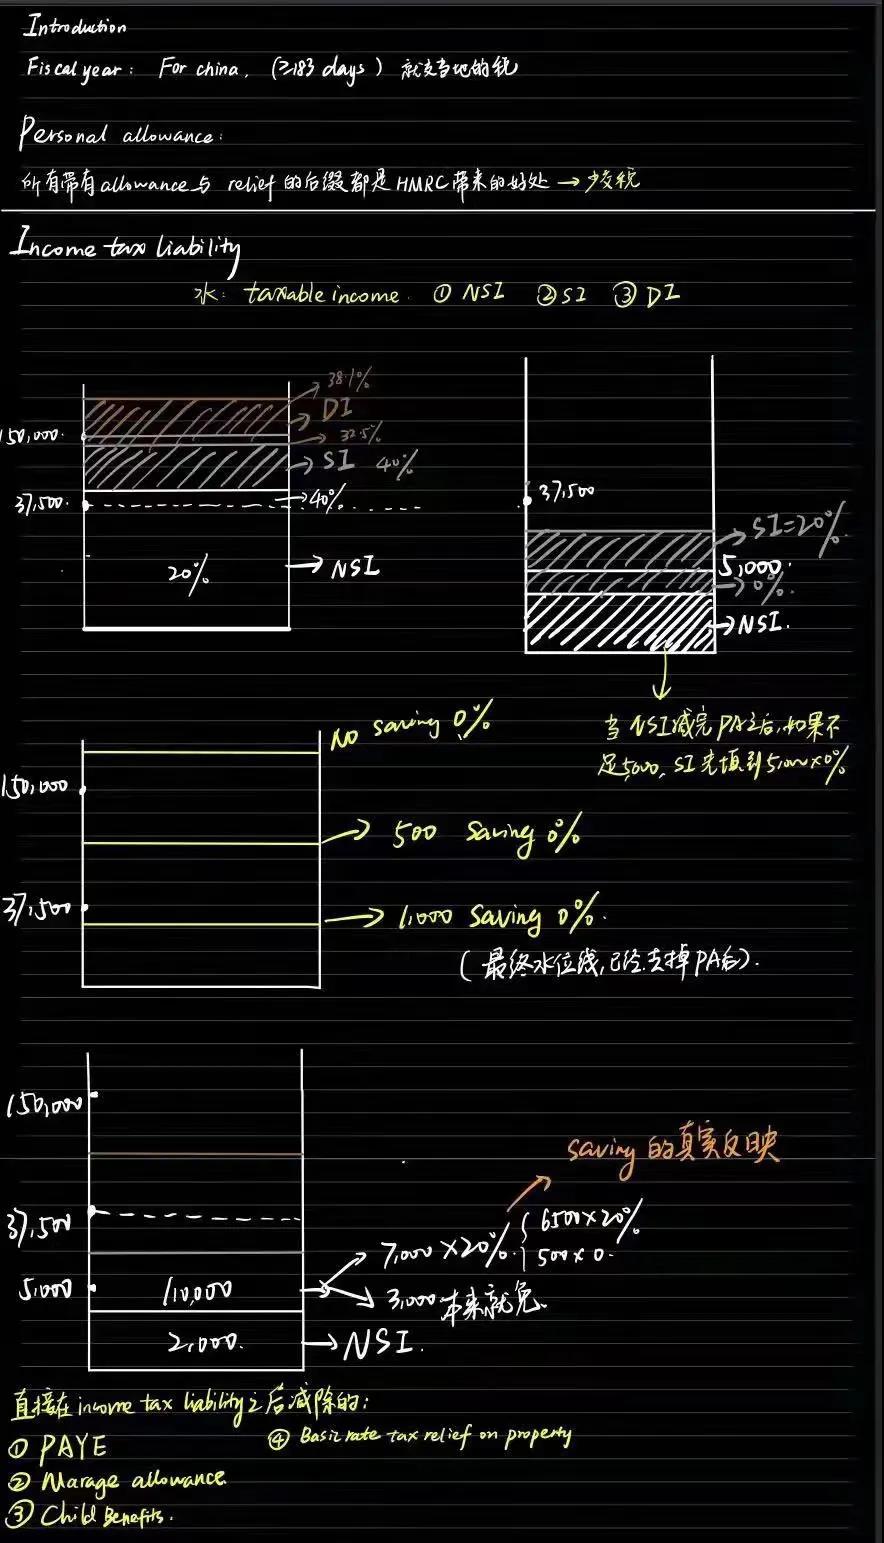 Introduction
Fiscal year: For china, (≥183 days) 就交当地的税
Personal allowance:
所有带有allowance与 relief 的后缀都是HMRC带来的好处 → 少交税
Income tax liability
水: taxable income. ① NSI ② SI ③ DI
38.1%
DI
150,000.
32.5%
SI 40%
37,500.
40%
20%
NSI
37,500
SI=20%.
5,000.
0%.
NSI.
当NSI减完PA之后,如果不
足5,000, SI先填到5,000×0%
No saving 0%
150,000
500 saving 0%
37,500
1,000 saving 0%.
(最终水位线,已经去掉PA后).
150,000
saving 的真实反映
37,500
7,000×20%.
6500×20%
500×0.
5,000
10,000
3,000.本来就免.
2,000.
NSI.
直接在income tax liability之后减除的:
① PAYE
④ Basic rate tax relief on property
② Marage allowance.
③ Child Benefits.